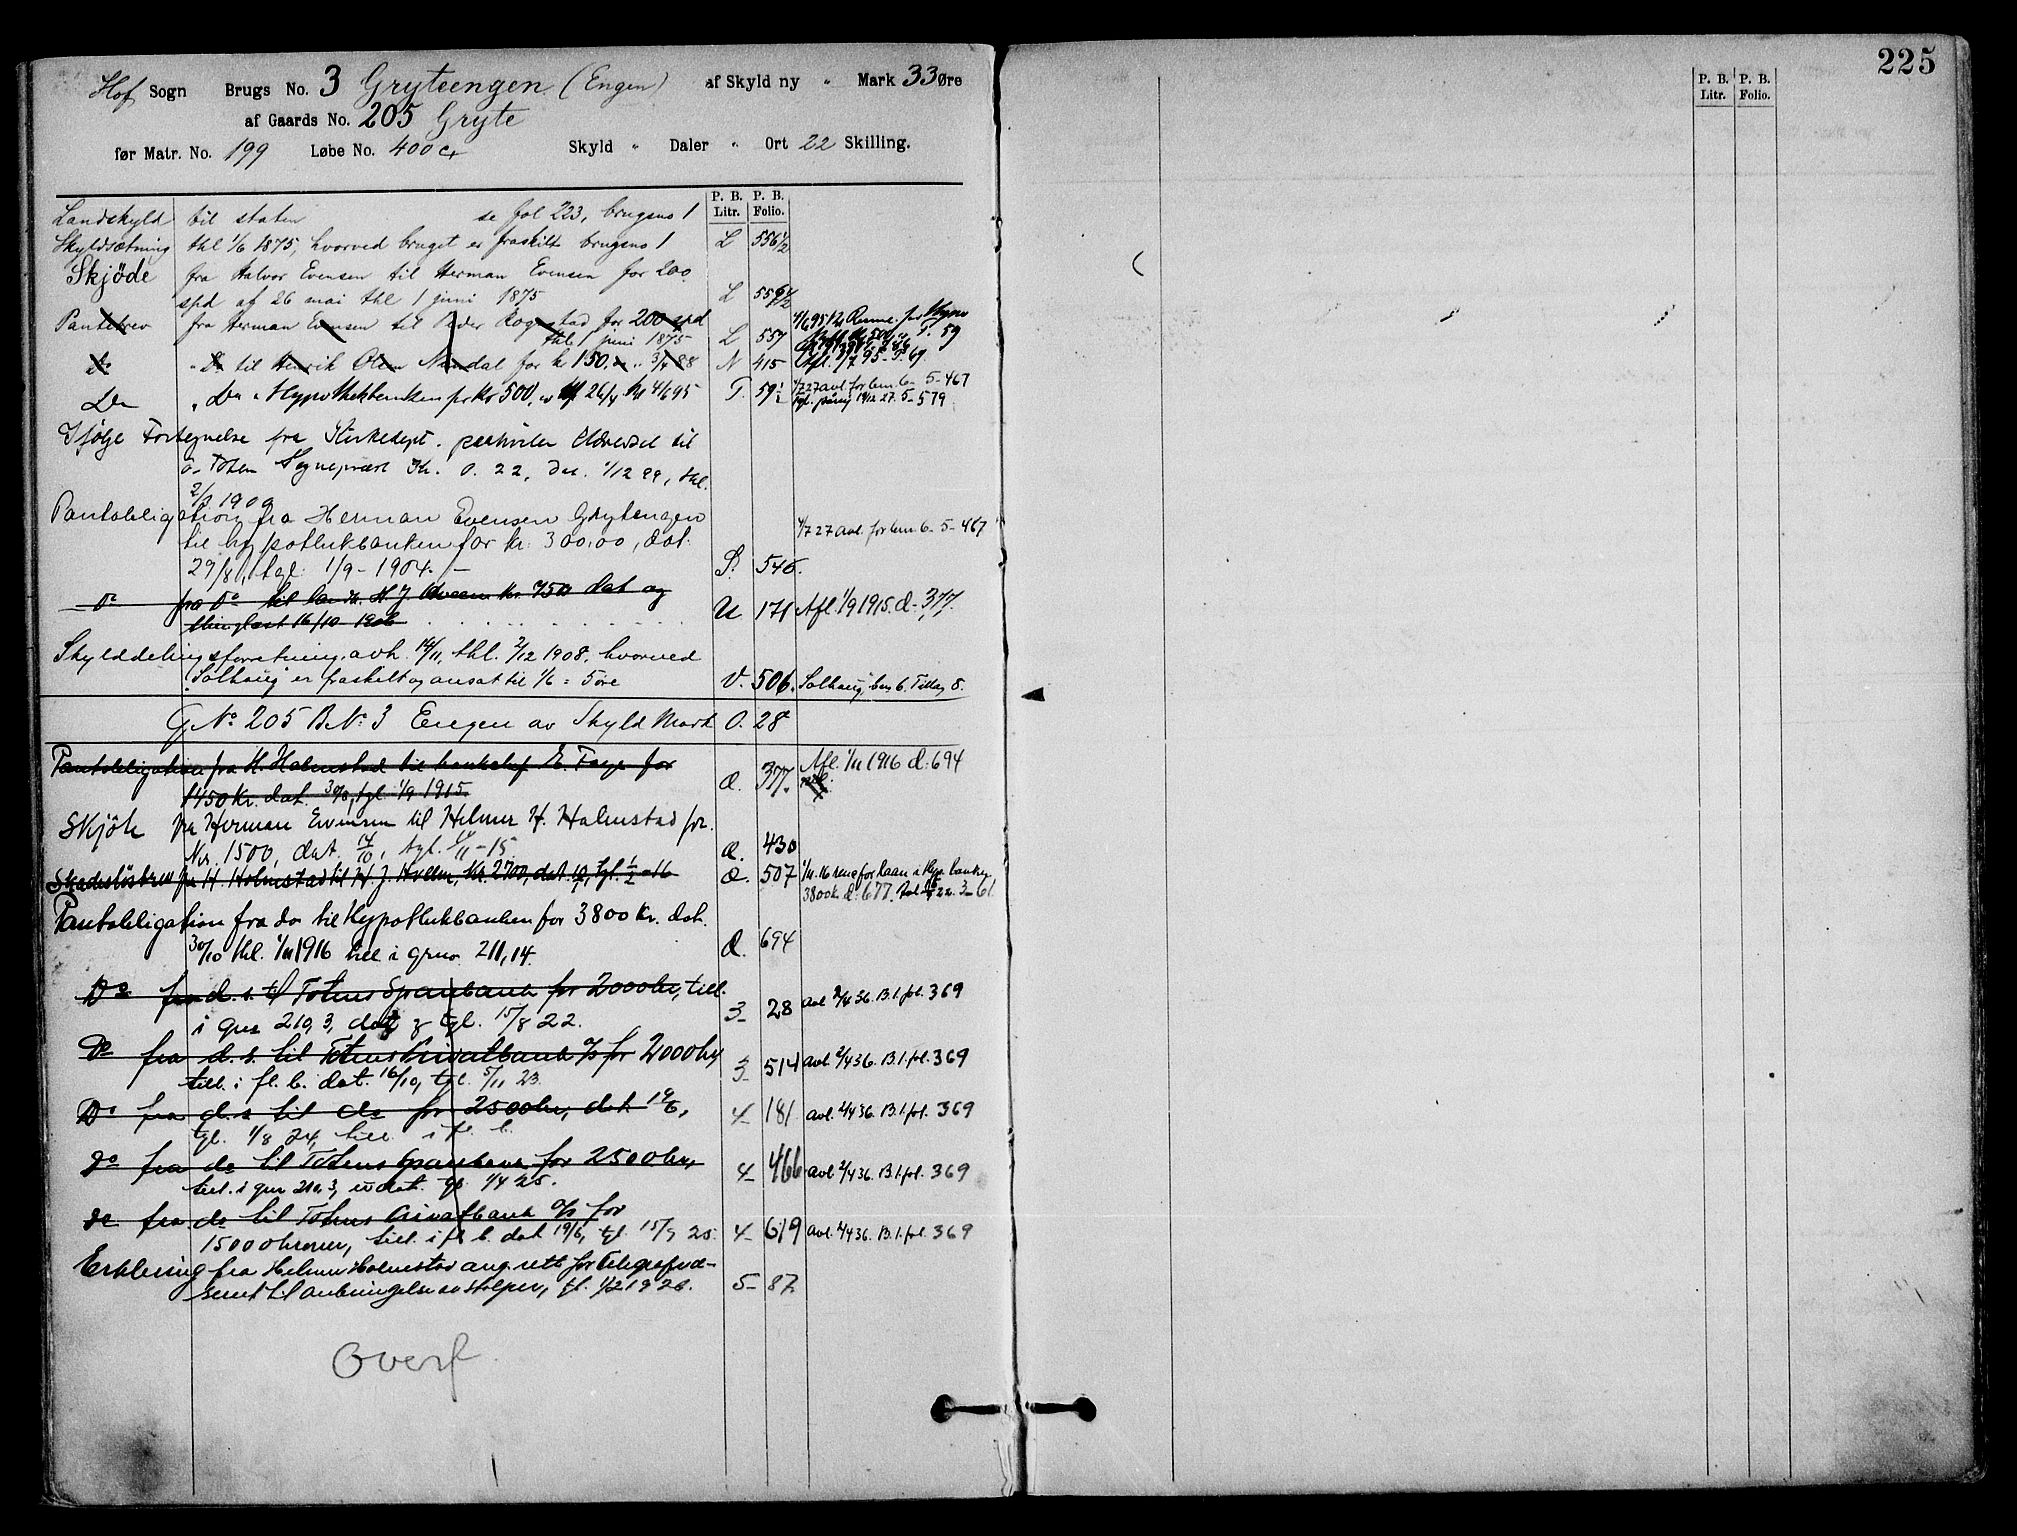 225
Hof Sogn Brugs No. 3 Gryteengen (Engen) af Skyld ny " Mark 33 Øre
af Gaards No. 205 Gryte
før Matr. No. 199 Løbe No. 400 Skyld " Daler " Ort 22 Skilling.
P. B. Litr. P. B. Folio.
P. B. Litr. P. B. Folio.
Landskyld til staten se fol 223, brugsno 1
Skyldsætning thl 1/6 1875, hvorved bruget er fraskilt brugsno 1 L 556 1/2
Skjöde fra Halvor Evensen til Herman Evensen for 200
spd af 26 mai thl 1 juni 1875 L
Pantebrev fra Herman Evensen til Peder Rognstad for 200 spd
thl 1 juni 1875 L 557
Do " Do til Henrik Olsen for kr 150, 88 N 415 95
Do " Do " Hypothekbanken for Kr 500, 26/4 thl 4/6 95 T. 59 4/7 27 avl. for lem 6- 5-467
Tgl. 19/12 27. 5-579
Ifölge Fortegnelse fra Kirkedept. til
Ö. Toten Kr. 0. 22, dat. 1/12 99, thl.
1900
Pantobligation fra Herman Evensen Grytengen 4/7 27 avl. for lem 6- 5-467
til hypothekbanken for kr. 300,00, dat.
29/8, tgl. 1/9-1904. S. 546.
Do fra Do til H. J. kr. 750 dat og
thinglæst 16/10 1906 U 171 Afl. 1/9 1915. d-377.
Skylddelingsforretning avh. 14/11, thl. 2/12 1908, hvorved
"Solhaug" er fraskilt og ansat til 1/6 = 5 øre V. 506. Solhaug, bno 6. Tillæg 8.
G.No. 205 B.No. 3 Engen av Skyld Mark 0.28
Pantobligation fra H. Holmstad til E. for Afl. 1/11 1916 d. 694
1450 Kr. dat. 30/8, tgl. 1/9 1915. d. 377.
Skjöte fra Herman Evensen til Helmer H. Holmstad for
Kr. 1500, dat. 14/10, tgl. 1/11-15 d. 430
Skadeslösbrev fra H. Holmstad til H. J. Kr. 2700, dat. tgl. 1/2-16 d. 507 1/11.16 for laan i Hyp. banken
3800 k d. 677. 3-61
Pantobligation fra do til Hypothekbanken for 3800 Kr. dat.
30/10 thl. 1/11 1916 till i grno. 211,14. d. 694
Do fra d. s. til Totens Sparebank for 2000 kr, till. 3- 28 avl 2/4 36. B.1. fol. 369
i gno 210,3, dat og tgl. 15/8 22.
Do fra d. s. til Totens Privatbank A/S for 2000 kr 3- 514 avl. 2/4 36. B.1. fol. 369
till. i fl. b. dat. 16/10, tgl. 5/11 23.
Do fra d. s til do for 2500 kr, dat 4- 181 avl. 2/4 36. B.1. fol. 369
tgl. 1/8 24, till. i fl. b.
Do fra do til Totens Sparebank for 2500 kr, 4- 466 avl. 2/4 36. B.1. fol. 369
till. i gno 210,3, dat. tgl 1/4 25.
do fra do til Totens Privatbank A/S for
15000 kroner, till. i fl b. dat 19/6, tgl. 15/7 25. 4- 619 avl. 2/4 36. B.1. fol. 369
Erklering fra Helmer Holmstad ang. rett for Telegrafve-
senet til anbringelse av stolper, tgl. 1926. 5- 87
Overf.